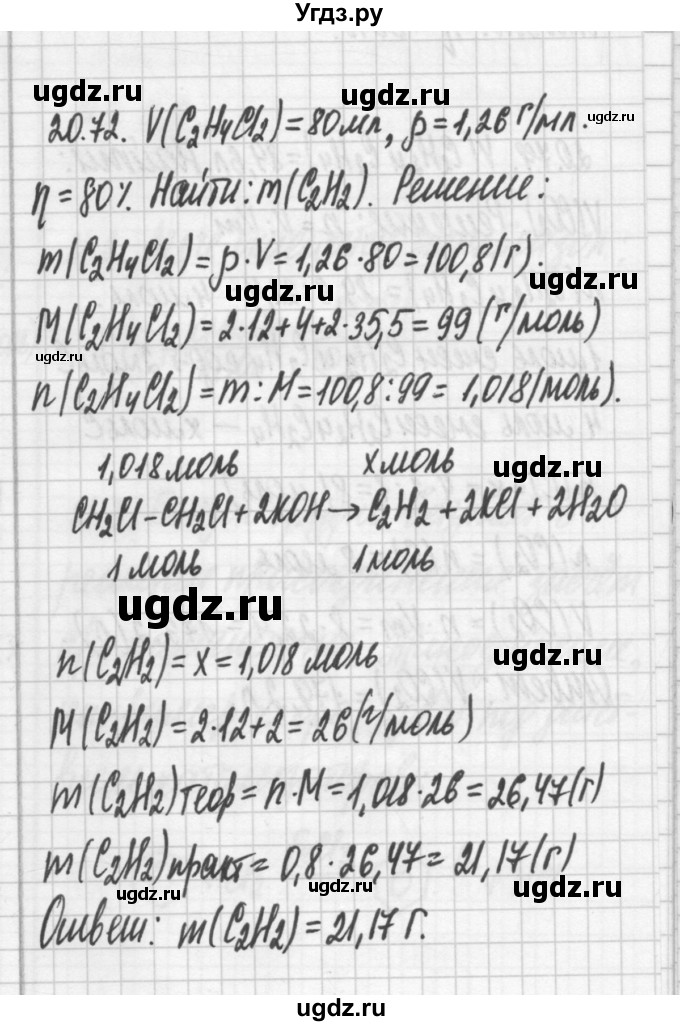 Угдз.ру
ugdz.ru
ugdz.ru
20.72. V(C₂H₄Cl₂) = 80 мл, ρ = 1,26 г/мл.
ugdz.ru
η = 80%. Найти: m(C₂H₂). Решение:
m(C₂H₄Cl₂) = ρ·V = 1,26·80 = 100,8(г).
ugdz.ru
ugdz.ru
M(C₂H₄Cl₂) = 2·12+4+2·35,5 = 99 (г/моль)
ugdz.ru
n(C₂H₄Cl₂) = m : M = 100,8 : 99 = 1,018(моль).
1,018 моль x моль
ugdz.ru
CH₂Cl–CH₂Cl + 2KOH → C₂H₂ + 2KCl + 2H₂O
1 моль 1 моль
ugdz.ru
n(C₂H₂) = x = 1,018 моль
ugdz.ru
M(C₂H₂) = 2·12+2 = 26(г/моль)
m(C₂H₂)теор = n·M = 1,018·26 = 26,47(г)
m(C₂H₂)практ = 0,8·26,47 = 21,17(г)
ugdz.ru
ugdz.ru
Ответ: m(C₂H₂) = 21,17 г.
ugdz.ru